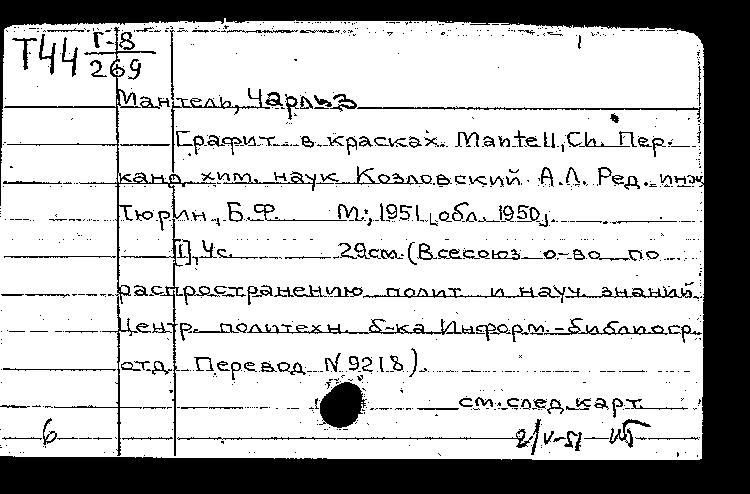 Т44 Г-8
269
Мантель, Чарльз
Графит в красках. Mantell, Ch. Пер.
канд. хим. наук Козловский А.Л. Ред. инж
Тюрин, Б.Ф. М., 1951 [обл. 1950].
[1], 4с. 29см. (Всесоюз. о-во по
распространению полит и науч. знаний.
Центр. политехн. б-ка Информ.-библиогр.
отд. Перевод N 9218).
см. след. карт.
6